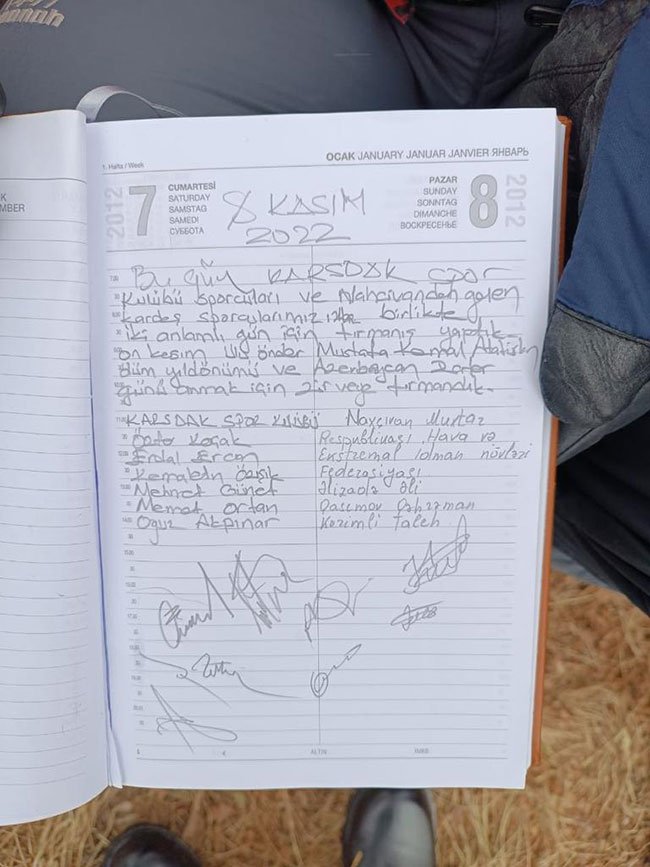 1. Hafta / Week
OCAK JANUARY JANUAR JANVIER ЯНВАРЬ
2012
7
CUMARTESİ
SATURDAY
SAMSTAG
SAMEDI
СУББОТА
8 KASIM
2022
PAZAR
SUNDAY
SONNTAG
DIMANCHE
ВОСКРЕСЕНЬЕ
8
2012
Bu gün KARSDAK spor
Kulübü sporcuları ve Nahcivandan gelen
kardeş sporcularımız birlikte
iki anlamlı gün için tırmanış yaptık
on kasım ulu önder Mustafa Kemal Atatürk
ölüm yıldönümü ve Azerbaycan Zafer
günü anmak için zirveye tırmandık.
KARSDAK SPOR KULÜBÜ Naxçıvan Muxtar
Koçak Respublikası Hava və
Erdal Ercan Ekstremal idman növləri
Kemalettin Federasiyası
Mehmet Günet Əlizadə Əli
Memet ortan Qasımov Qəhrəman
Oğuz Akpınar Kərimli Taleh
ALTIN
IMKB